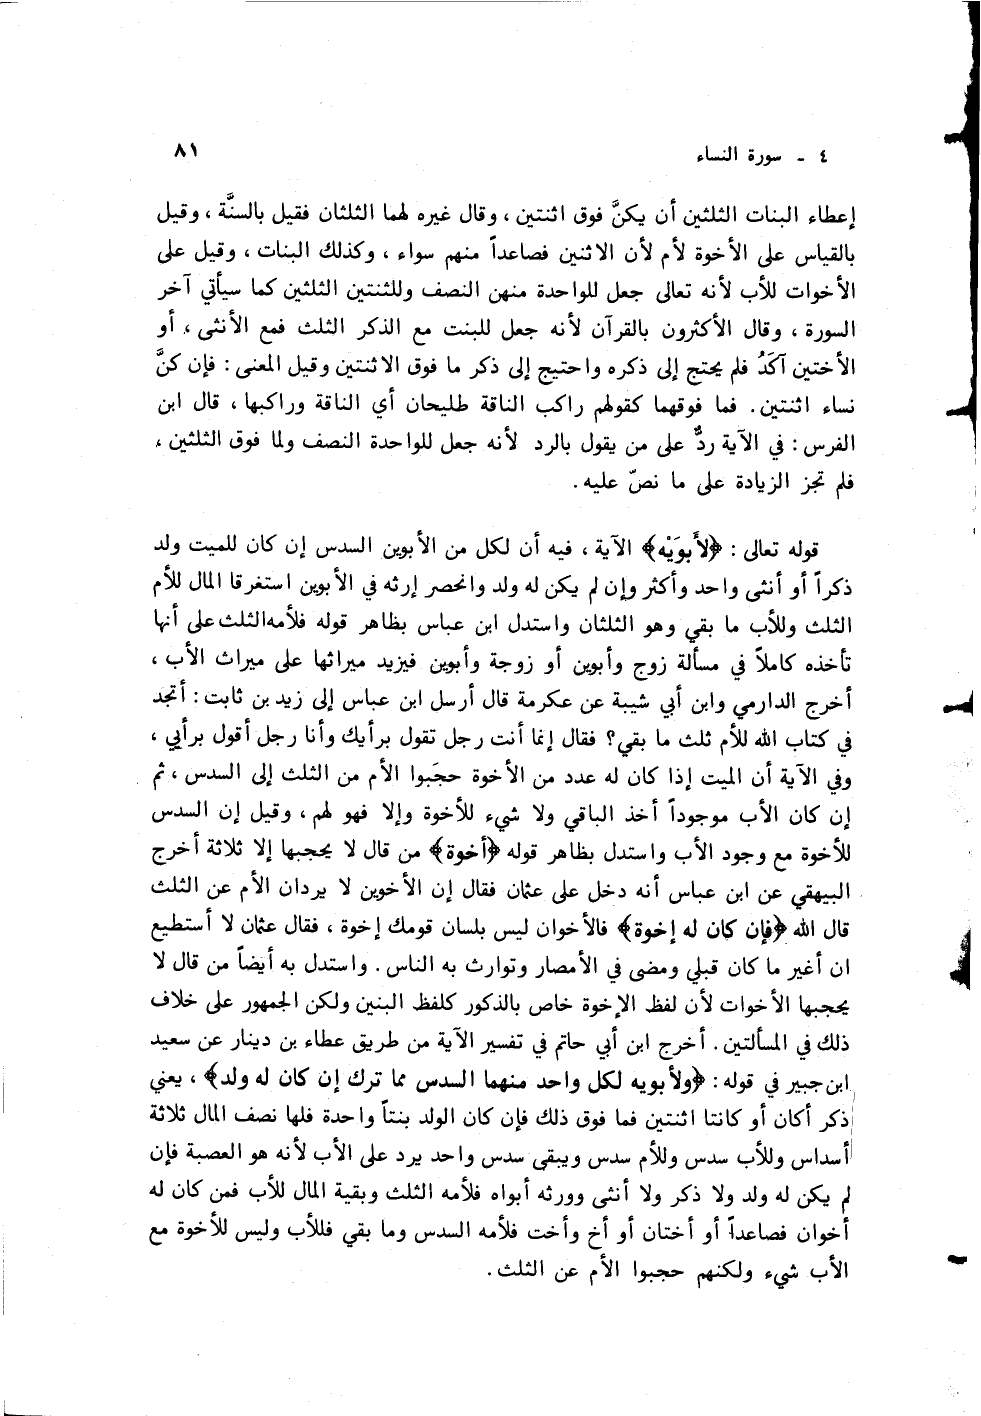 ٤ - سورة النساء ٨١
إعطاء البنات الثلثين أن يكنَّ فوق اثنتين ، وقال غيره لهما الثلثان فقيل بالسنَّة ، وقيل
بالقياس على الأخوة لأم لأن الاثنين فصاعداً منهم سواء ، وكذلك البنات ، وقيل على
الأخوات للأب لأنه تعالى جعل للواحدة منهن النصف وللثنتين الثلثين كما سيأتي آخر
السورة ، وقال الأكثرون بالقرآن لأنه جعل للبنت مع الذكر الثلث فمع الأنثى ، أو
الأختين آكَدُ فلم يحتج إلى ذكره واحتيج إلى ذكر ما فوق الاثنتين وقيل المعنى : فإن كنَّ
نساء اثنتين. فما فوقهما كقولهم راكب الناقة طليحان أي الناقة وراكبها ، قال ابن
الفرس : في الآية ردٌّ على من يقول بالرد لأنه جعل للواحدة النصف ولما فوق الثلثين ،
فلم تجز الزيادة على ما نصّ عليه.
قوله تعالى : ﴿لأَبوَيْه﴾ الآية ، فيه أن لكل من الأبوين السدس إن كان للميت ولد
ذكراً أو أنثى واحد وأكثر وإن لم يكن له ولد وانحصر إرثه في الأبوين استغرقا المال للأم
الثلث وللأب ما بقي وهو الثلثان واستدل ابن عباس بظاهر قوله فلأمه الثلث على أنها
تأخذه كاملاً في مسألة زوج وأبوين أو زوجة وأبوين فيزيد ميراثها على ميراث الأب ،
أخرج الدارمي وابن أبي شيبة عن عكرمة قال أرسل ابن عباس إلى زيد بن ثابت : أتجد
في كتاب الله للأم ثلث ما بقي؟ فقال إنما أنت رجل تقول برأيك وأنا رجل أقول برأيي ،
وفي الآية أن الميت إذا كان له عدد من الأخوة حجَبوا الأم من الثلث إلى السدس ، ثم
إن كان الأب موجوداً أخذ الباقي ولا شيء للأخوة وإلا فهو لهم ، وقيل إن السدس
للأخوة مع وجود الأب واستدل بظاهر قوله ﴿أخوة﴾ من قال لا يحجبها إلا ثلاثة أخرج
البيهقي عن ابن عباس أنه دخل على عثمان فقال إن الأخوين لا يردان الأم عن الثلث
قال الله ﴿فإن كان له إخوة﴾ فالأخوان ليس بلسان قومك إخوة ، فقال عثمان لا أستطيع
ان أغير ما كان قبلي ومضى في الأمصار وتوارث به الناس. واستدل به أيضاً من قال لا
يحجبها الأخوات لأن لفظ الإخوة خاص بالذكور كلفظ البنين ولكن الجمهور على خلاف
ذلك في المسألتين. أخرج ابن أبي حاتم في تفسير الآية من طريق عطاء بن دينار عن سعيد
ابن جبير في قوله : ﴿ولأبويه لكل واحد منهما السدس مما ترك إن كان له ولد﴾ ، يعني
ذكر أكان أو كانتا اثنتين فما فوق ذلك فإن كان الولد بنتاً واحدة فلها نصف المال ثلاثة
أسداس وللأب سدس وللأم سدس ويبقى سدس واحد يرد على الأب لأنه هو العصبة فإن
لم يكن له ولد ولا ذكر ولا أنثى وورثه أبواه فلأمه الثلث وبقية المال للأب فمن كان له
أخوان فصاعداً أو أختان أو أخ وأخت فلأمه السدس وما بقي فللأب وليس للأخوة مع
الأب شيء ولكنهم حجبوا الأم عن الثلث.